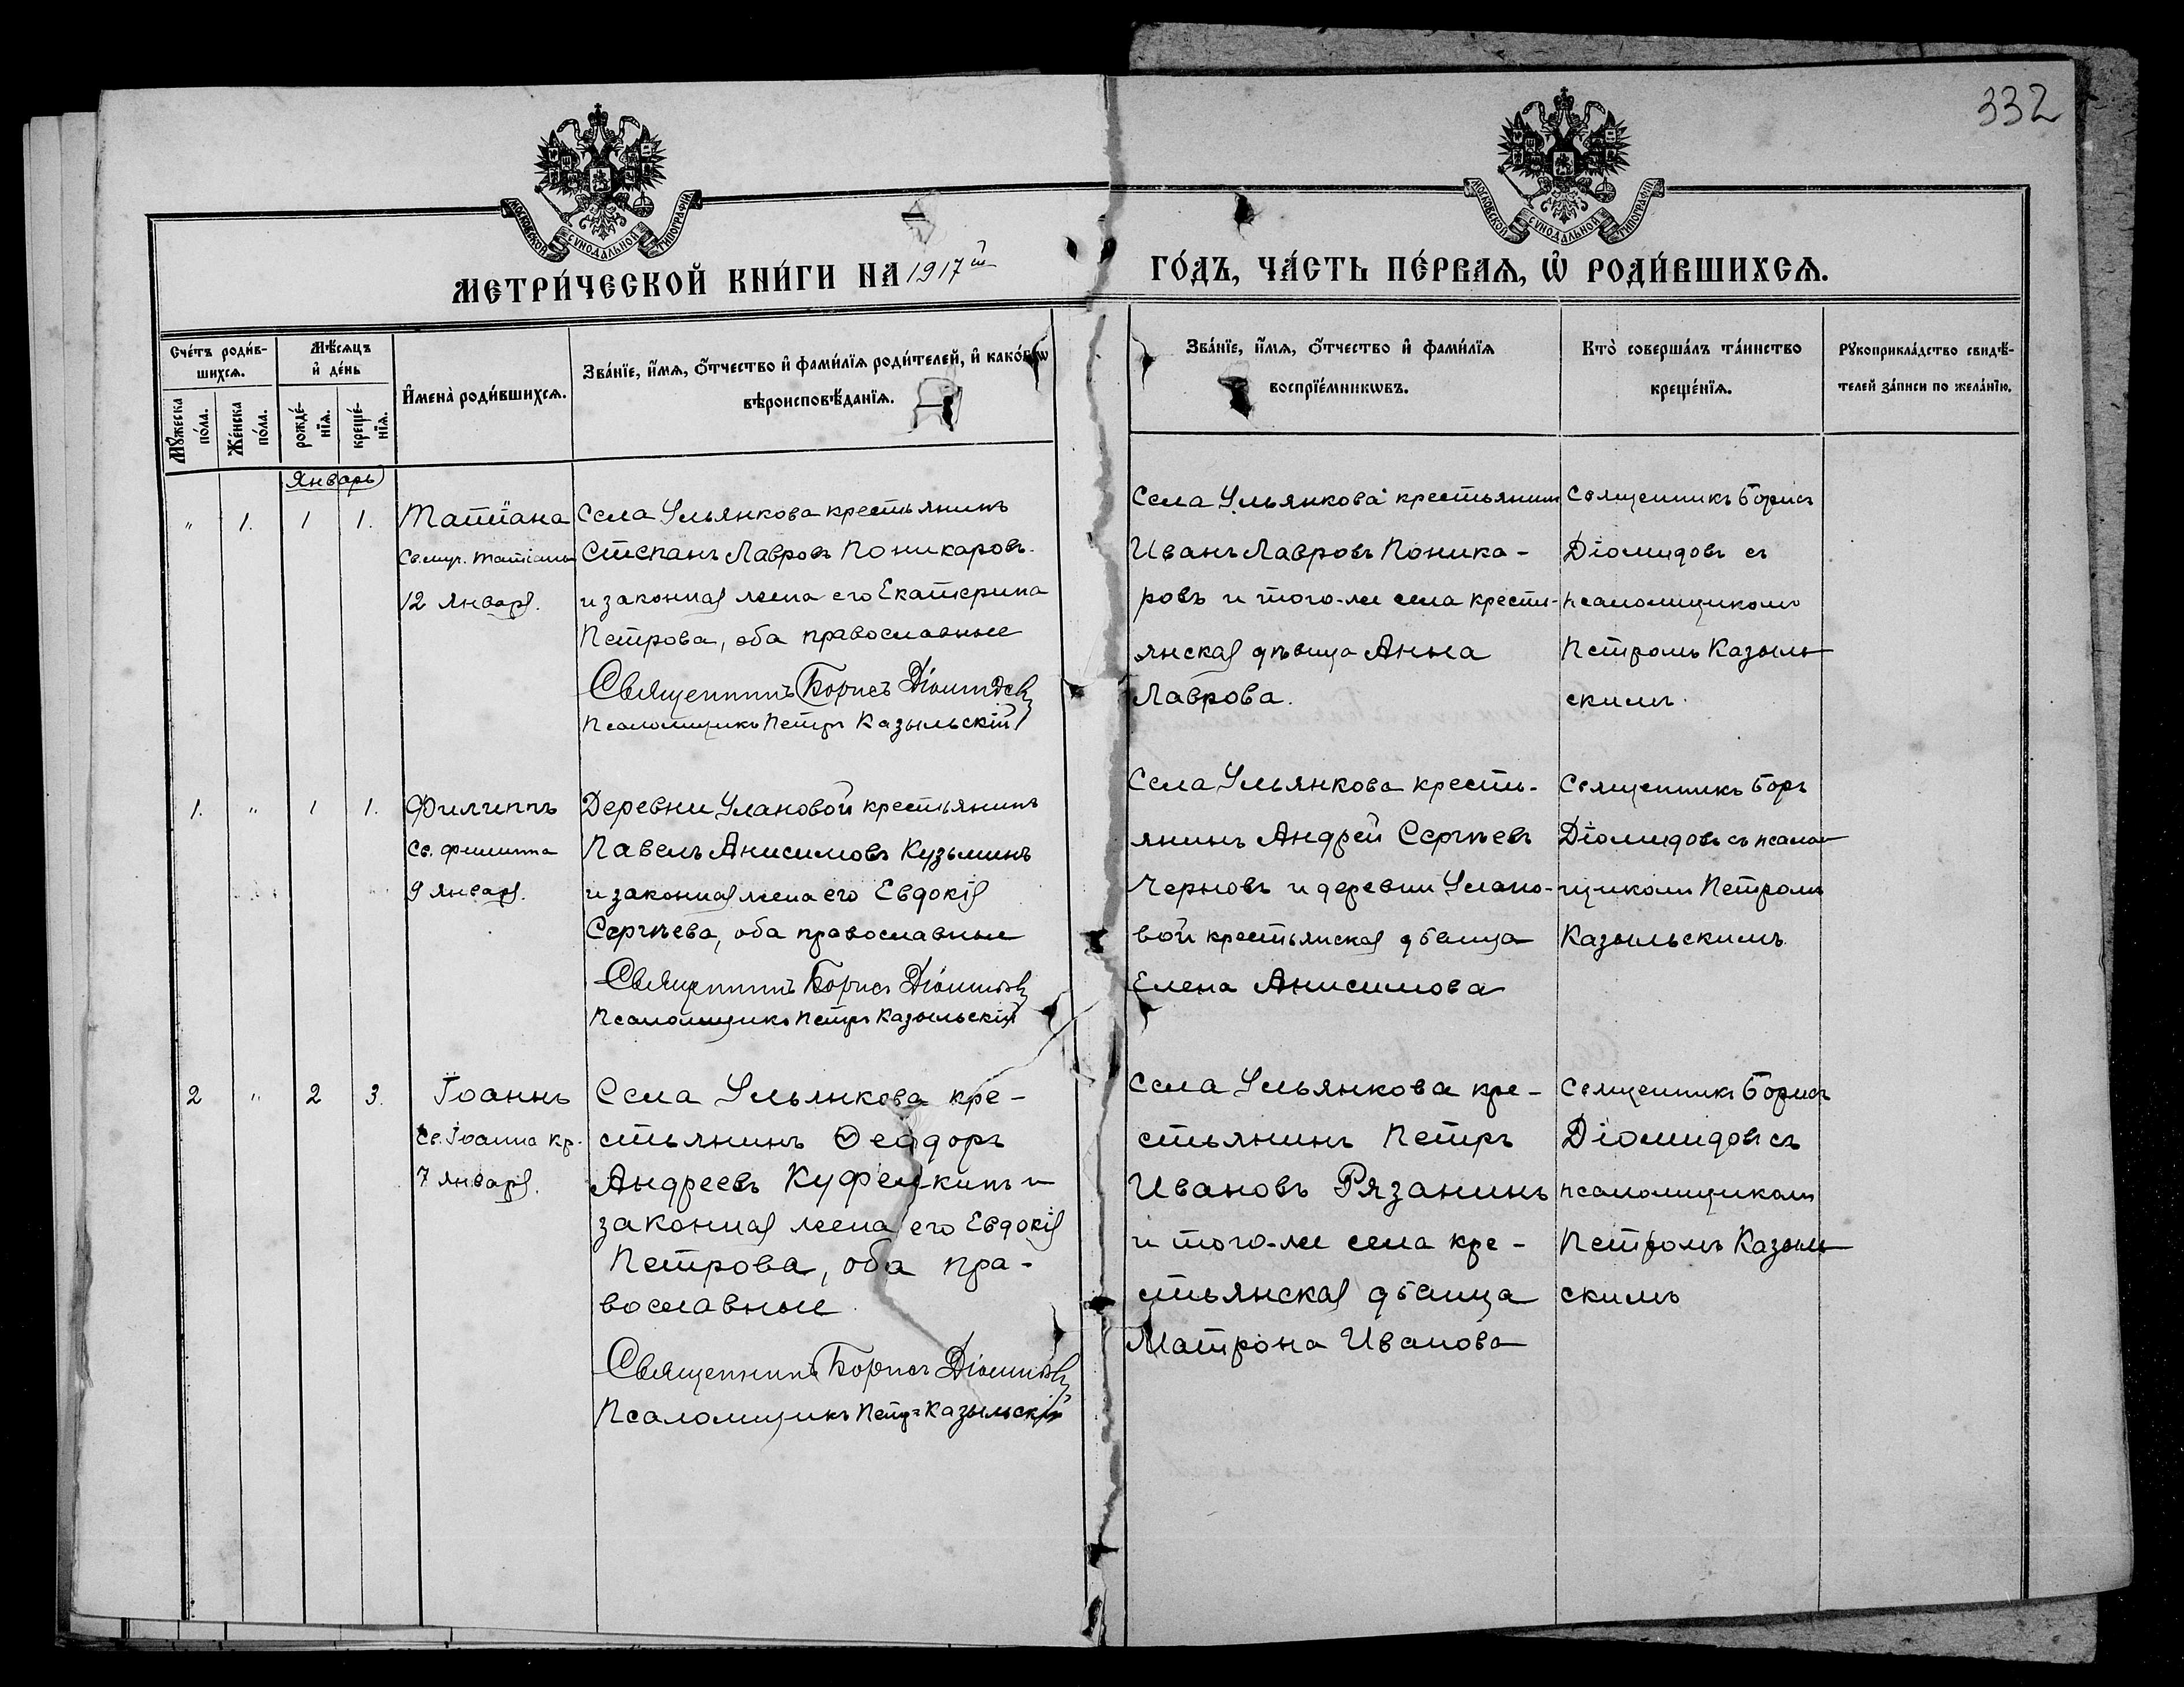 332
МОСКОВСКОЙ СѴНОДАЛЬНОЙ ТИПОГРАФІИ
МОСКОВСКОЙ СѴНОДАЛЬНОЙ ТИПОГРАФІИ
МЕТРИ́ЧЕСКОЙ КНИ́ГИ НА 1917й ГО́ДЪ, ЧА́СТЬ ПЕ́РВАѦ, Ѡ҆ РОДИ́ВШИХСѦ.
Сче́тъ роди́в-
шихсѧ.
Мꙋ́жеска
по́ла.
Же́нска
по́ла.
Мѣ́сѧцъ
и҆ де́нь
рожде́-
нїѧ.
креще́-
нїѧ.
И҆мена̀ роди́вшихсѧ.
Зва́нїе, и҆́мѧ, ѻ҆́тчество и҆ фамилїѧ роди́телей, и҆ како́гѡ
вѣроисповѣ́данїѧ.
Зва́нїе, и҆́мѧ, ѻ҆́тчество и҆ фами́лїѧ
воспрїе́мникѡвъ.
Кто̀ соверша́лъ та́инство
креще́нїѧ.
Рꙋкоприкла́дство свидѣ́-
телей за́писи по жела́нїю.
Январь
" 1. 1 1.
Татіана
Св. муч. Татіаны
12 января.
Села Ульянкова крестьянинъ
Степанъ Лавровъ Поникаровъ
и законная жена его Екатерина
Петрова, оба православные
Священникъ Борисъ Діомидовъ
Псаломщикъ Петръ Казыльскій
Села Ульянкова крестьянинъ
Иванъ Лавровъ Поника-
ровъ и того-же села кресть-
янская дѣвица Анна
Лаврова.
Священникъ Борисъ
Діомидовъ съ
псаломщикомъ
Петромъ Казыль
скимъ.
1. " 1 1.
Филиппъ
Св. Филиппа
9 января.
Деревни Улановой крестьянинъ
Павелъ Анисимовъ Кузьминъ
и законная жена его Евдокія
Сергѣева, оба православные
Священникъ Борисъ Діомидовъ
Псаломщикъ Петръ Казыльскій
Села Ульянкова кресть-
янинъ Андрей Сергѣевъ
Черновъ и деревни Улано-
вой крестьянская дѣвица
Елена Анисимова
Священникъ Боръ
Діомидовъ съ псалом
щикомъ Петромъ
Казыльскимъ
2 " 2 3.
Іоаннъ
Св. Іоанна Кр.
7 января.
Села Ульянкова кре-
стьянинъ Ѳеодоръ
Андреевъ Куфелкинъ и
законная жена его Евдокія
Петрова, оба пра-
вославные
Священникъ Борисъ Діомидовъ
Псаломщикъ Петръ Казыльскій
Села Ульянкова кре-
стьянинъ Петръ
Ивановъ Рязанинъ
и того-же села кре-
стьянская дѣвица
Матрона Иванова
Священникъ Борисъ
Діомидовъ съ
псаломщикомъ
Петромъ Казыль
скимъ